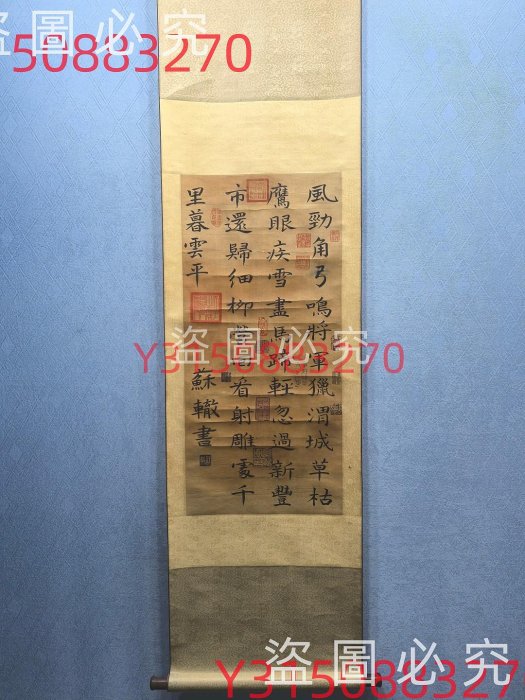 盜圖必究
50883270
風勁角弓鳴將軍獵渭城草枯
鷹眼疾雪盡馬蹄輕忽過新豐
市還歸細柳營回看射雕處千
里暮雲平
蘇轍書
盜圖必究
Y3150883270
盜圖必究
Y315088327